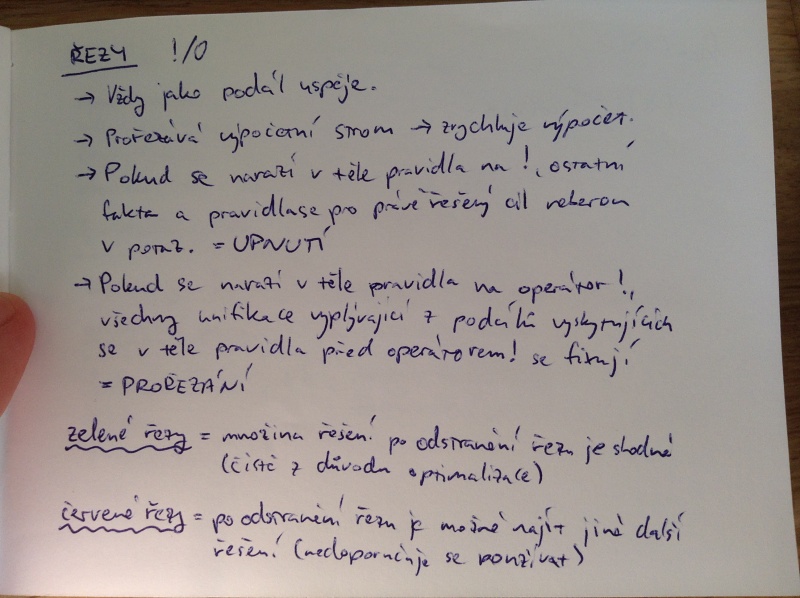 ŘEZY !/0
→ Vždy jako podcíl uspěje.
→ Prořezává výpočetní strom → zrychluje výpočet.
→ Pokud se narazí v těle pravidla na !, ostatní
fakta a pravidla se pro právě řešený cíl neberou
v potaz. = UPNUTÍ
→ Pokud se narazí v těle pravidla na operátor !,
všechny unifikace vyplývající z podcílů vyskytujících
se v těle pravidla před operátorem ! se fixují
= PROŘEZÁNÍ
zelené řezy = množina řešení po odstranění řezu je shodná
(čistě z důvodu optimalizace)
červené řezy = po odstranění řezu je možné najít jiné další
řešení (nedoporučuje se používat)